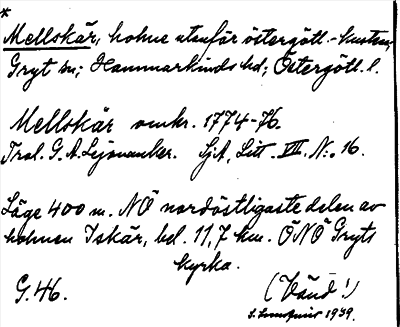 *
Mellskär, holme utanför östergötl.-kusten,
Gryt sn; Hammarkinds hd; Östergötl. l.
Mellskär omkr. 1774-76.
Trol. G. A. Lejonanker. SjA, Litt. VII. N:o 16.
Läge 400 m. NÖ nordöstligaste delen av
holmen Iskär, bel. 11,7 km. ÖNÖ Gryts
kyrka.
G. 46. (Vänd!)
1939.